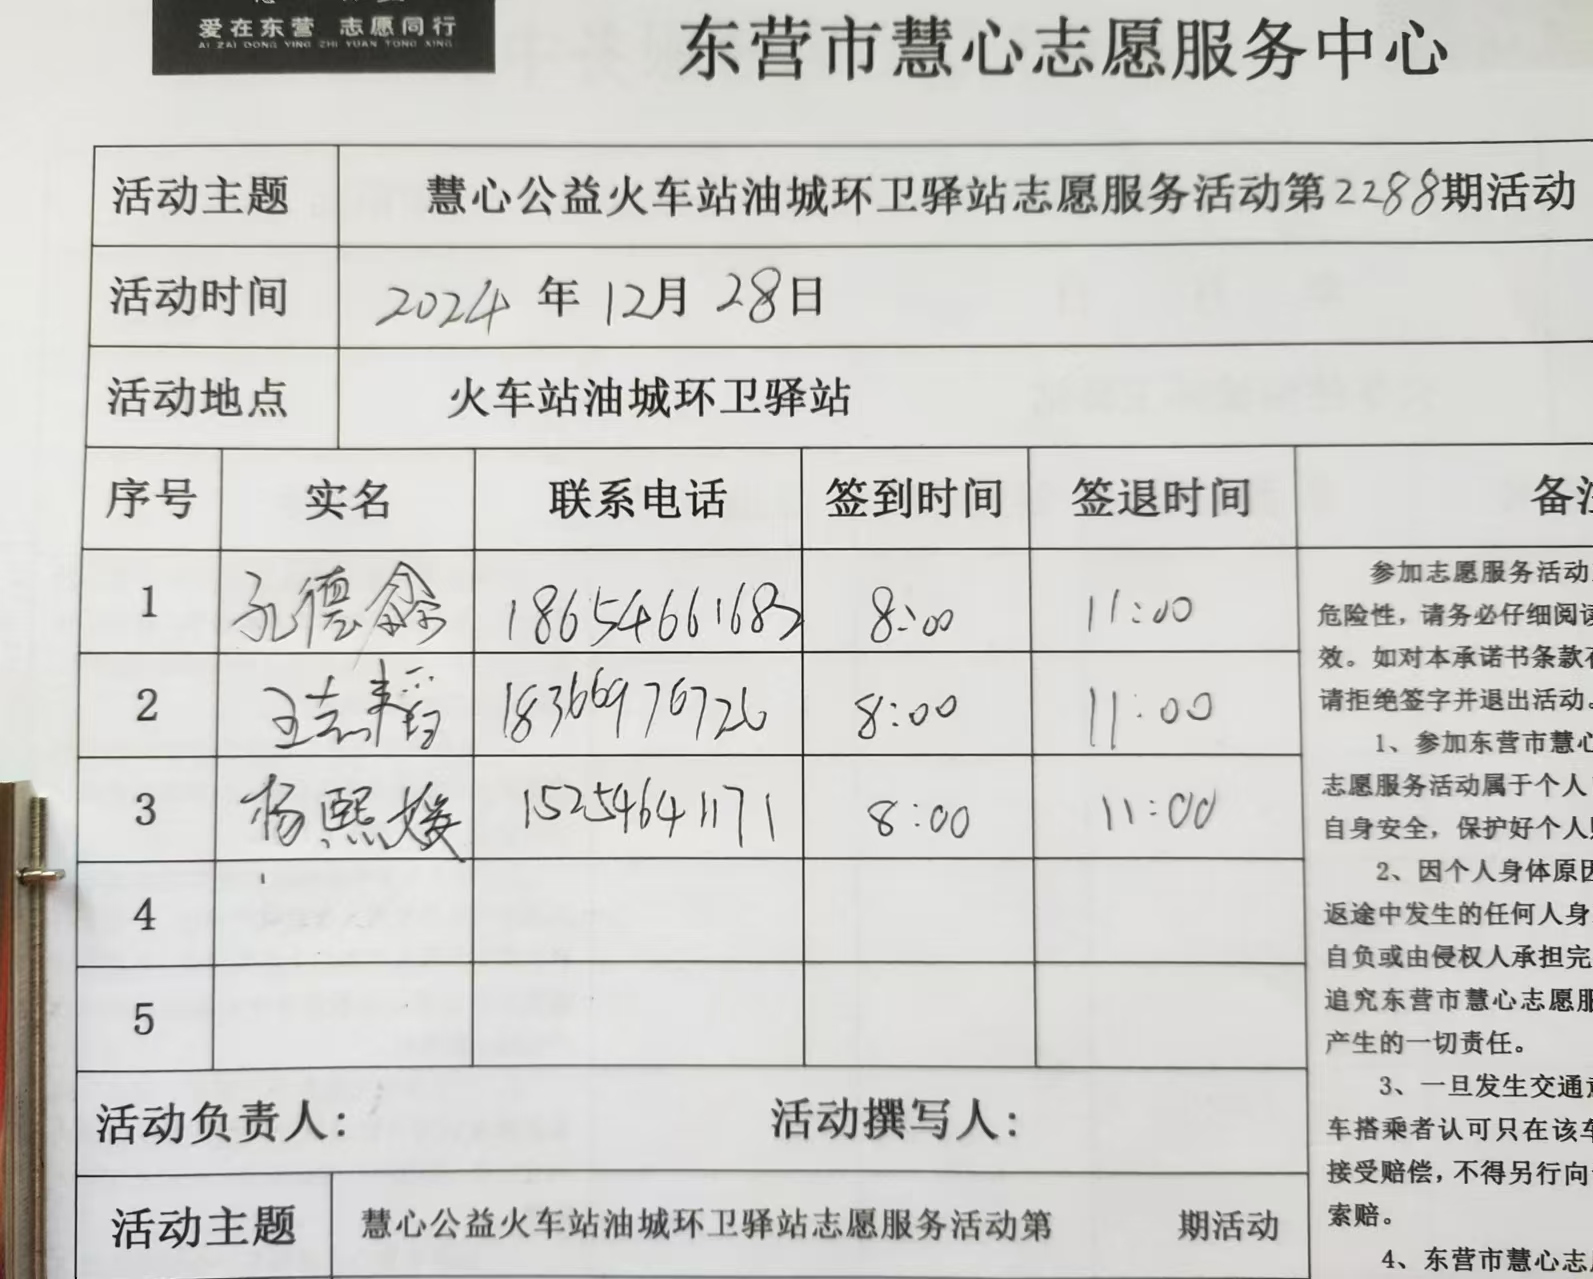 爱在东营 志愿同行
AI ZAI DONG YING ZHI YUAN TONG XING
东营市慧心志愿服务中心
活动主题 慧心公益火车站油城环卫驿站志愿服务活动第2288期活动
活动时间 2024年12月28日
活动地点 火车站油城环卫驿站
序号 实名 联系电话 签到时间 签退时间 备注
1 孔德 18654661683 8:00 11:00
2 王志 18366976726 8:00 11:00
3 杨熙媛 15254641171 8:00 11:00
4
5
参加志愿服务活动
危险性，请务必仔细阅读
效。如对本承诺书条款有
请拒绝签字并退出活动。
1、参加东营市慧心
志愿服务活动属于个人
自身安全，保护好个人
2、因个人身体原因
返途中发生的任何人身
自负或由侵权人承担完
追究东营市慧心志愿服
产生的一切责任。
3、一旦发生交通意
车搭乘者认可只在该车
接受赔偿，不得另行向
索赔。
4、东营市慧心志
活动负责人： 活动撰写人：
活动主题 慧心公益火车站油城环卫驿站志愿服务活动第 期活动